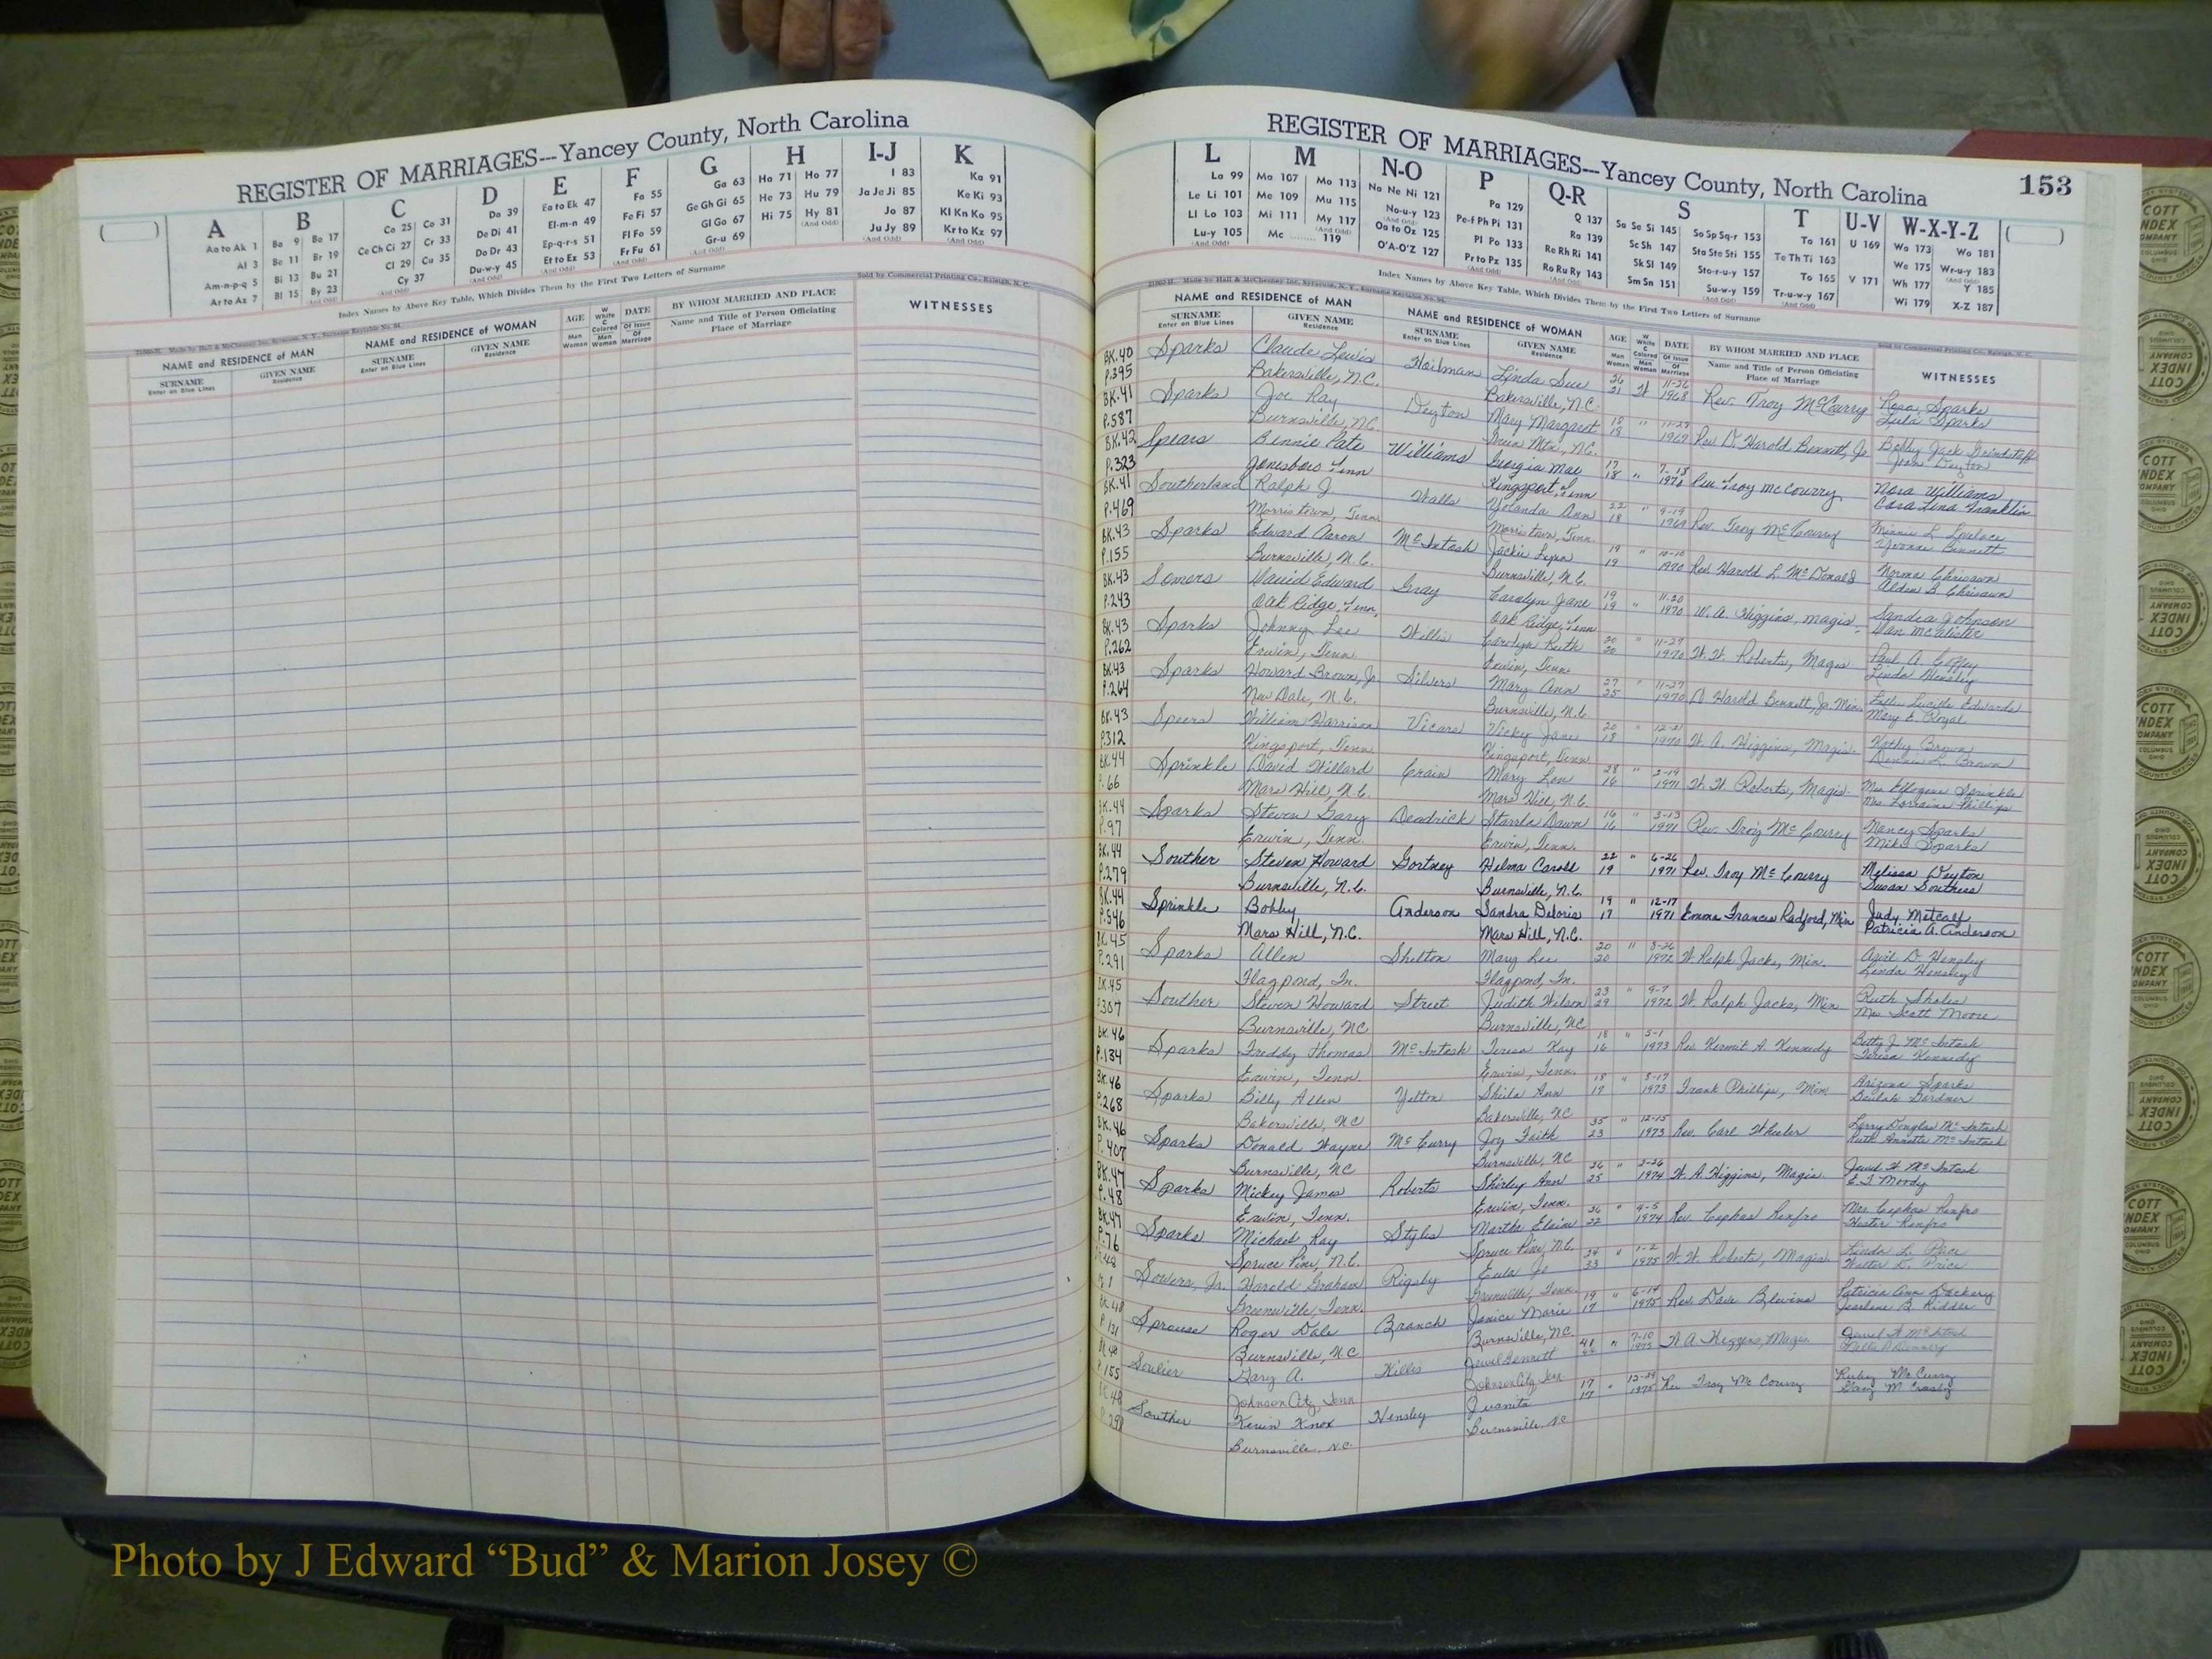 REGISTER OF MARRIAGES---Yancey County, North Carolina
A B C D E F G H I-J K
Aa to Ak 1 Ba 9 Be 17 Ca 25 Co 31 Da 39 Ea to Ek 47 Fa 55 Ga 63 Ha 71 Ho 77 I 83 Ka 91
Al 3 Be 11 Br 19 Ce Ch Ci 27 Cr 33 De Di 41 El-m-n 49 Fe Fi 57 Ge Gh Gi 65 He 73 Hu 79 Ja Je Ji 85 Ke Ki 93
Am-n-p-q 5 Bi 13 Bu 21 Cl 29 Cu 35 Do Dr 43 Ep-q-r-s 51 Fl Fo 59 Gl Go 67 Hi 75 Hy 81 Jo 87 Kl Kn Ko 95
Ar to Az 7 Bl 15 By 23 Cy 37 Du-w-y 45 Et to Ez 53 Fr Fu 61 Gr-u 69 Ju Jy 89 Kr to Kz 97
Index Names by Above Key Table, Which Divides Them by the First Two Letters of Surname
Sold by Commercial Printing Co., Raleigh, N. C.
NAME and RESIDENCE of MAN NAME and RESIDENCE of WOMAN AGE DATE BY WHOM MARRIED AND PLACE WITNESSES
SURNAME Enter on Blue Lines GIVEN NAME Residence SURNAME Enter on Blue Lines GIVEN NAME Residence Man Woman W White C Colored Man Woman Of Issue Of Marriage Name and Title of Person Officiating Place of Marriage
REGISTER OF MARRIAGES---Yancey County, North Carolina 153
L M N-O P Q-R S T U-V W-X-Y-Z
La 99 Ma 107 Mo 113 Na Ne Ni 121 Pa 129 Q 137 Sa Se Si 145 So Sp Sq-r 153 Ta 161 U 169 Wa 173 Wo 181
Le Li 101 Me 109 Mu 115 No-u-y 123 Pe-f Ph Pi 131 Ra 139 Sc Sh 147 Sta Ste Sti 155 Te Th Ti 163 We 175 Wr-u-y 183
Ll Lo 103 Mi 111 My 117 Oa to Oz 125 Pl Po 133 Re Rh Ri 141 Sk Sl 149 Sto-r-u-y 157 To 165 V 171 Wh 177 Y 185
Lu-y 105 Mc 119 O'A-O'Z 127 Pr to Pz 135 Ro Ru Ry 143 Sm Sn 151 Su-w-y 159 Tr-u-w-y 167 Wi 179 X-Z 187
Index Names by Above Key Table, Which Divides Them by the First Two Letters of Surname
NAME and RESIDENCE of MAN NAME and RESIDENCE of WOMAN AGE DATE BY WHOM MARRIED AND PLACE WITNESSES
SURNAME Enter on Blue Lines GIVEN NAME Residence SURNAME Enter on Blue Lines GIVEN NAME Residence Man Woman W White C Colored Man Woman Of Issue Of Marriage Name and Title of Person Officiating Place of Marriage
BK.40 Sparks Claude Lewis Hoilman Linda Sue 26 21 W 11-26 1968 Rev. Troy McCourry Rosa Sparks
P.395 Bakersville, N.C. Bakersville, N.C. Lula Sparks
BK.41 Sparks Joe Ray Deyton Mary Margaret 18 19 " 11-29 1969 Rev. D. Harold Bennett, Jr. Bobby Jack Grindstaff
P.587 Burnsville, N.C. Green Mtn., N.C. Jean Deyton
BK.42 Spears Bennie Pate Williams Georgia Mae 17 18 " 7-18 1970 Rev. Troy McCourry Nora Williams
P.323 Jonesboro Tenn Kingsport, Tenn Cora Lena Franklin
BK.41 Southerland Ralph J. Walls Yolanda Ann 22 18 " 9-19 1969 Rev. Troy McCourry Minnie L. Lovelace
P.469 Morristown, Tenn. Morristown, Tenn. Yvonne Bennett
BK.43 Sparks Edward Aaron McIntosh Jackie Lynn 19 19 " 10-10 1970 Rev. Harold L. McDonald Norma Chrisawn
P.155 Burnsville, N.C. Burnsville, N.C. Alden B. Chrisawn
BK.43 Somers David Edward Gray Carolyn Jane 19 19 " 11-20 1970 W.A. Higgins, magis. Sandra Johnson
P.243 Oak Ridge, Tenn. Oak Ridge, Tenn Van McAlister
BK.43 Sparks Johnny Lee Willis Carolyn Ruth 20 20 " 11-27 1970 W.W. Roberts, Magis Paul A. Coffey
P.262 Erwin, Tenn. Erwin, Tenn Linda Hensley
BK.43 Sparks Howard Brown, Jr. Silvers Mary Ann 27 25 " 11-27 1970 D. Harold Bennett, Jr. Min. Lucille Edwards
P.264 New Dale, N.C. Burnsville, N.C. Mary E. Royal
BK.43 Speers William Harrison Vicars Vicky Jane 20 18 " 12-21 1970 W.A. Higgins, Magis. Kathy Brown
P.312 Kingsport, Tenn. Kingsport, Tenn Dennis L. Brown
BK.44 Sprinkle David Willard Crain Mary Lou 28 16 " 2-19 1971 W.W. Roberts, Magis. Mrs. Effogene Sprinkle
P.66 Mars Hill, N.C. Mars Hill, N.C. Mrs. Lorraine Phillips
BK.44 Sparks Steven Gary Deadrick Starla Dawn 16 16 " 3-13 1971 Rev. Troy McCourry Nancy Sparks
P.97 Erwin, Tenn. Erwin, Tenn. Mike Sparks
BK.44 Souther Steven Howard Gortney Wilma Carole 22 19 " 6-26 1971 Rev. Troy McCourry Melissa Deyton
P.279 Burnsville, N.C. Burnsville, N.C. Susan Southers
BK.44 Sprinkle Bobby Anderson Sandra Deloris 19 17 " 12-17 1971 Emma Frances Radford, Min Judy Metcalf
P.546 Mars Hill, N.C. Mars Hill, N.C. Patricia A. Anderson
BK.45 Sparks Allen Shelton Mary Lee 20 20 " 8-26 1972 W. Ralph Jacks, Min. April D. Hensley
P.291 Flagpond, Tn. Flagpond, Tn. Linda Hensley
BK.45 Souther Steven Howard Street Judith Wilson 23 29 " 9-7 1972 W. Ralph Jacks, Min Ruth Sholes
P.307 Burnsville, NC Burnsville, NC Mrs. Scott Moore
BK.46 Sparks Freddy Thomas McIntosh Teresa Kay 18 16 " 5-1 1973 Rev. Kermit A. Kennedy Betty J. McIntosh
P.134 Erwin, Tenn. Erwin, Tenn. Teresa Kennedy
BK.46 Sparks Billy Allen Yelton Shila Ann 18 17 " 8-17 1973 Frank Phillips, Min Arizona Sparks
P.268 Bakersville, NC Bakersville, NC Beulah Gardner
BK.46 Sparks Donald Wayne McCurry Joy Faith 35 23 " 12-15 1973 Rev. Carl Wheeler Larry Douglas McIntosh
P.407 Burnsville, NC Burnsville, NC Ruth Annette McIntosh
BK.47 Sparks Mickey James Roberts Shirley Ann 26 25 " 2-26 1974 W.A. Higgins, Magis. Jewel H. McIntosh
P.48 Erwin, Tenn. Erwin, Tenn. E.T. Moody
BK.47 Sparks Michael Ray Styles Martha Elaine 26 22 " 4-5 1974 Rev. Cephas Renfro Mrs. Cephas Renfro
P.76 Spruce Pine, N.C. Spruce Pine, N.C. Hester Renfro
BK.48 Sowers, Jr. Harold Graham Rigsby Eula Jo 1-2 1975 W.W. Roberts, Magis. Linda L. Price
P.1 Greenville, Tenn. Greenville, Tenn. Walter D. Price
BK.48 Sprouse Roger Dale Branch Janice Marie 19 17 " 6-14 1975 Rev. Dave Blevins Patricia Ann Dockery
P.131 Burnsville, N.C. Burnsville, N.C. B. Riddle
BK.48 Soulier Gary A. Willis Jewel Bennett " 7-10 1975 W.A. Higgins, Magis Jewel H. McIntosh
P.155 Johnson City, Tenn Johnson City, Tenn
BK.48 Souther Kevin Knox Hensley Juanita 17 17 " 12-24 1975 Rev Troy McCourry Ruby McCurry
P.298 Burnsville, N.C. Burnsville, N.C. M Crosby
Photo by J Edward “Bud” & Marion Josey ©
COTT INDEX COMPANY COLUMBUS OHIO